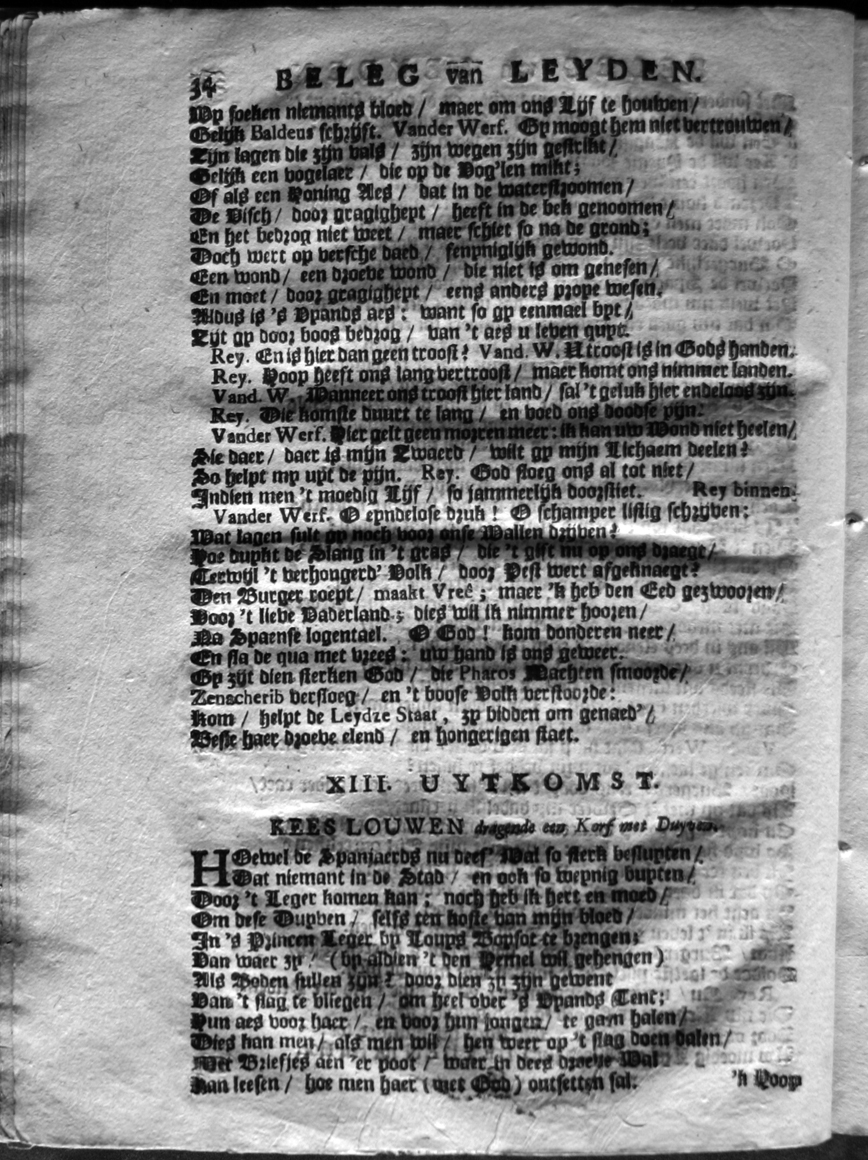 34 BELEG van LEYDEN.
Wy soeken niemants bloed / maer om ons Lijf te houwen /
Gelijk Baldeus schrijft. Vander Werf. Gy moogt hem niet vertrouwen /
Zijn lagen die zijn vals / zijn wegen zijn gestrikt /
Gelijk een vogelaer / die op de Vog'len mikt;
Of als een Koning Aes / dat in de waterstroomen /
De Visch / door gragigheyt / heeft in de bek genoomen /
En het bedrog niet weet / maer schiet so na de grond;
Doch wert op versche daed / fenynigjlijk gewond.
Een wond / een droeve wond / die niet is om genesen /
En moet / door gragigheyt / eens anders prope wesen.
Aldus is 's Vyands aes: want so gy eenmael byt /
Zijt gy door boos bedrog / van 't aes u leven quyt.
Rey. En is hier dan geen troost? Vand. W. U troost is in Gods handen.
Rey. Hoop heeft ons lang vertroost / maer komt ons nimmer landen.
Vand. W. Wanneer ons troost hier land / sal 't geluk hier endeloos zijn.
Rey. Die komste duurt te lang / en voed ons doodse pijn.
Vander Werf. Hier gelt geen morren meer: ik kan uw Wond niet heelen /
Sie daer / daer is mijn Zwaerd / wilt gy mijn Lichaem deelen?
So helpt my uyt de pijn. Rey. God sloeg ons al tot niet /
Indien men 't moedig Lijf / so jammerlijk doorstiet. Rey binnen.
Vander Werf. O eyndelose druk! O schamper listig schrijven:
Wat lagen sult gy noch voor onse Wallen drijven?
Hoe duykt de Slang in 't gras / die 't gift nu op ons draegt /
Terwijl 't verhongerd' Volk / door Pest wert afgeknaegt?
Den Burger roept / maakt Vreê; maer 'k heb den Eed gezwooren /
Voor 't lieve Vaderland; dies wil ik nimmer hooren /
Na Spaense logentael. O God! kom donderen neer /
En sla de qua met vrees: uw hand is ons geweer.
Gy zijt dien sterken God / die Pharos Machten smoorde /
Zenscherib versloeg / en 't boose Volk verstoorde:
Kom / helpt de Leydze Staat, zy bidden om genaed' /
Besie haer droeve elend / en hongerigen staet.
XIII. UYTKOMST.
KEES LOUWEN dragende een Korf met Duyven.
HOewel de Spanjaerds nu dees' Wal so sterk besluyten /
Dat niemant in de Stad / en ook so weynig buyten /
Door 't Leger komen kan; noch heb ik hert en moed /
Om dese Duyven / selfs ten koste van mijn bloed /
In 's Princen Leger by Louys Boysot te brengen:
Van waer zy / (by aldien 't den Hemel wil gehengen)
Als Boden sullen zijn? door dien zy zijn gewent
Van 't slag te vliegen / om heel over 's Vyands Tent;
Hun aes voor haer / en voor hun jongen / te gaen halen /
Dies kan men / als men wil / hen weer op 't slag doen dalen /
Met Briefjes aen 'er poot / waer in dees droeve Wal
Kan leesen / hoe men haer (met God) ontsetten sal.
'k Hoop